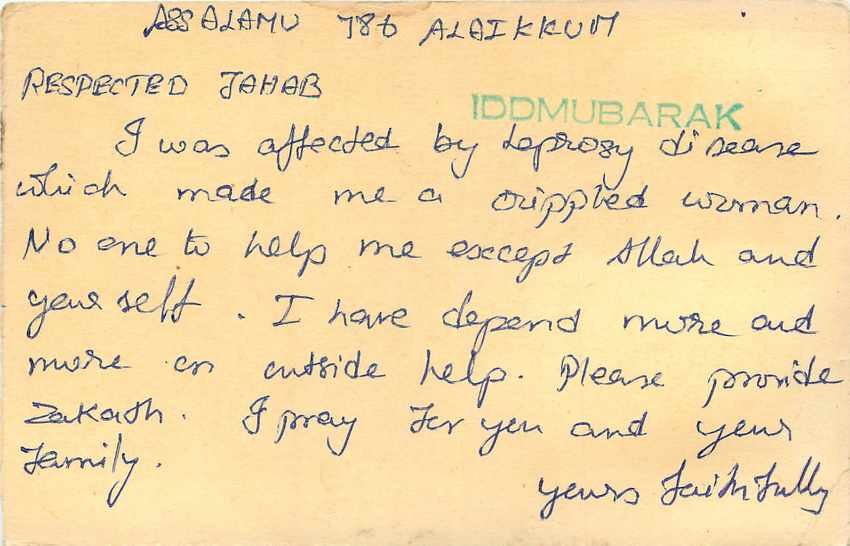 ASSALAMU 786 ALAIKKUM
RESPECTED JAHAB
IDDMUBARAK
I was affected by Leprosy disease
which made me a crippled woman.
No one to help me except Allah and
your self. I have depend more and
more on outside help. Please provide
Zakath. I pray for you and your
family.
yours faithfully